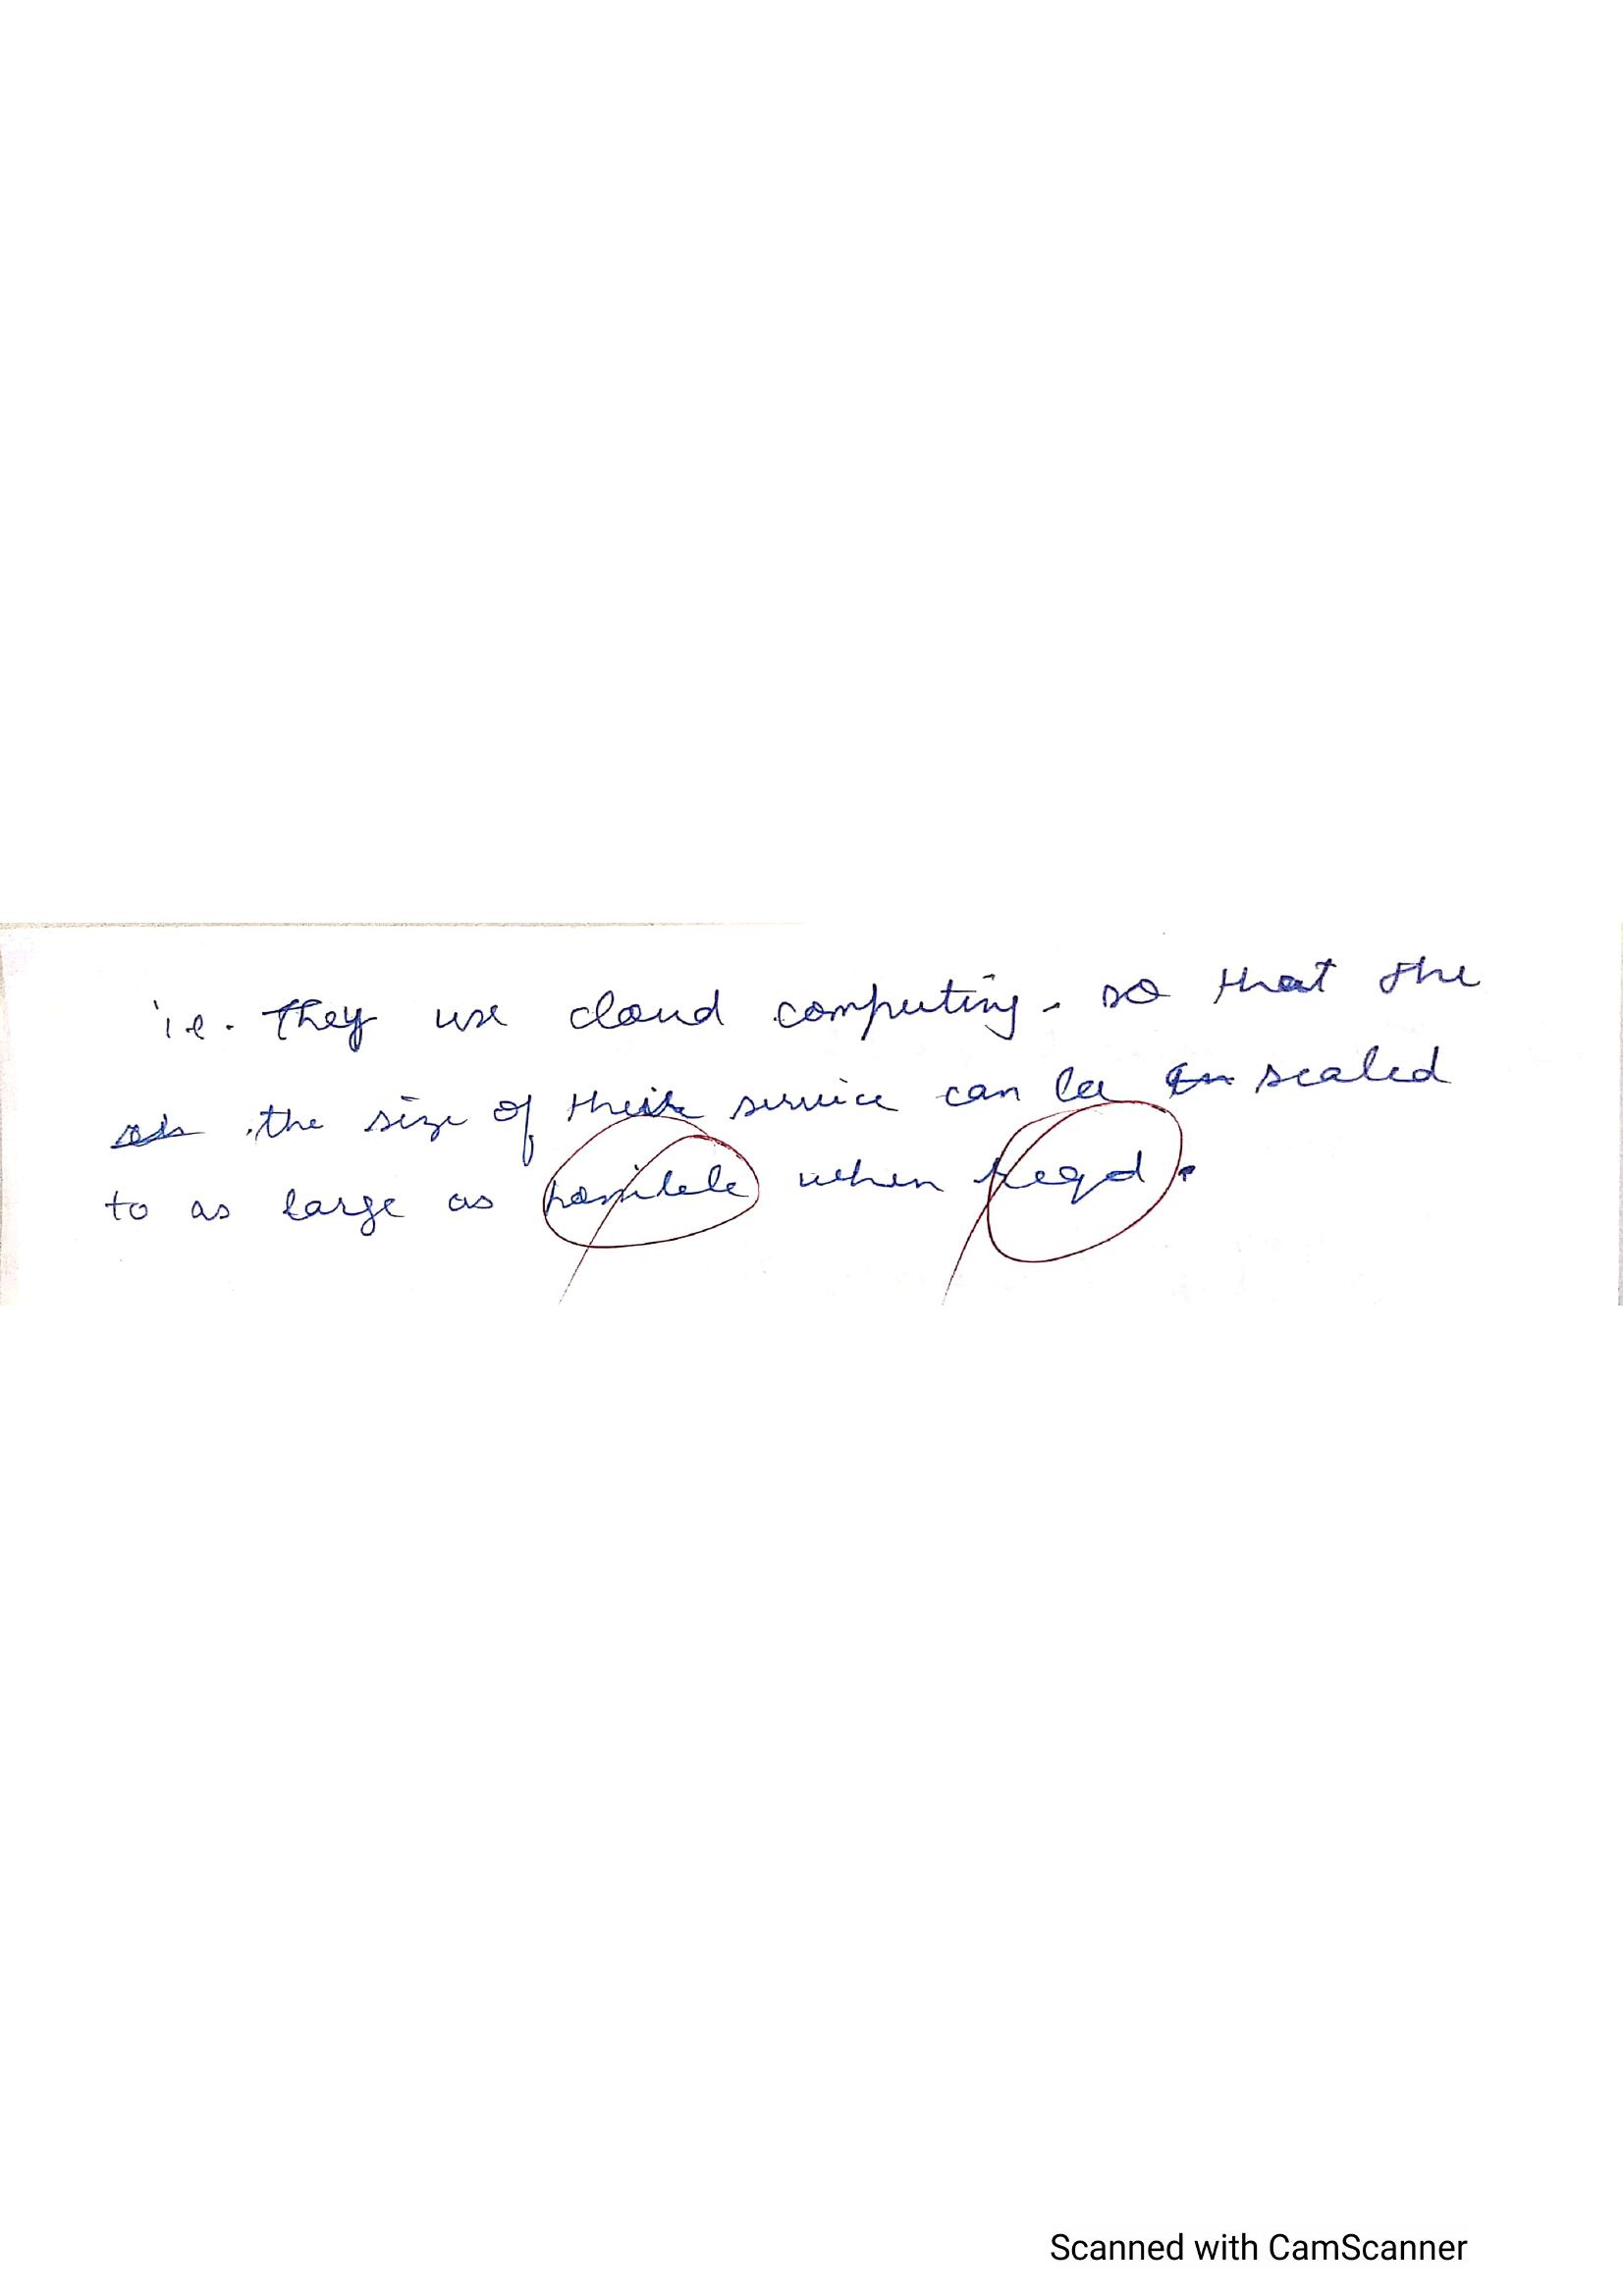 i.e. they use cloud computing. so that the
the size of their service can be scaled
to as large as possible when reqd.
Scanned with CamScanner